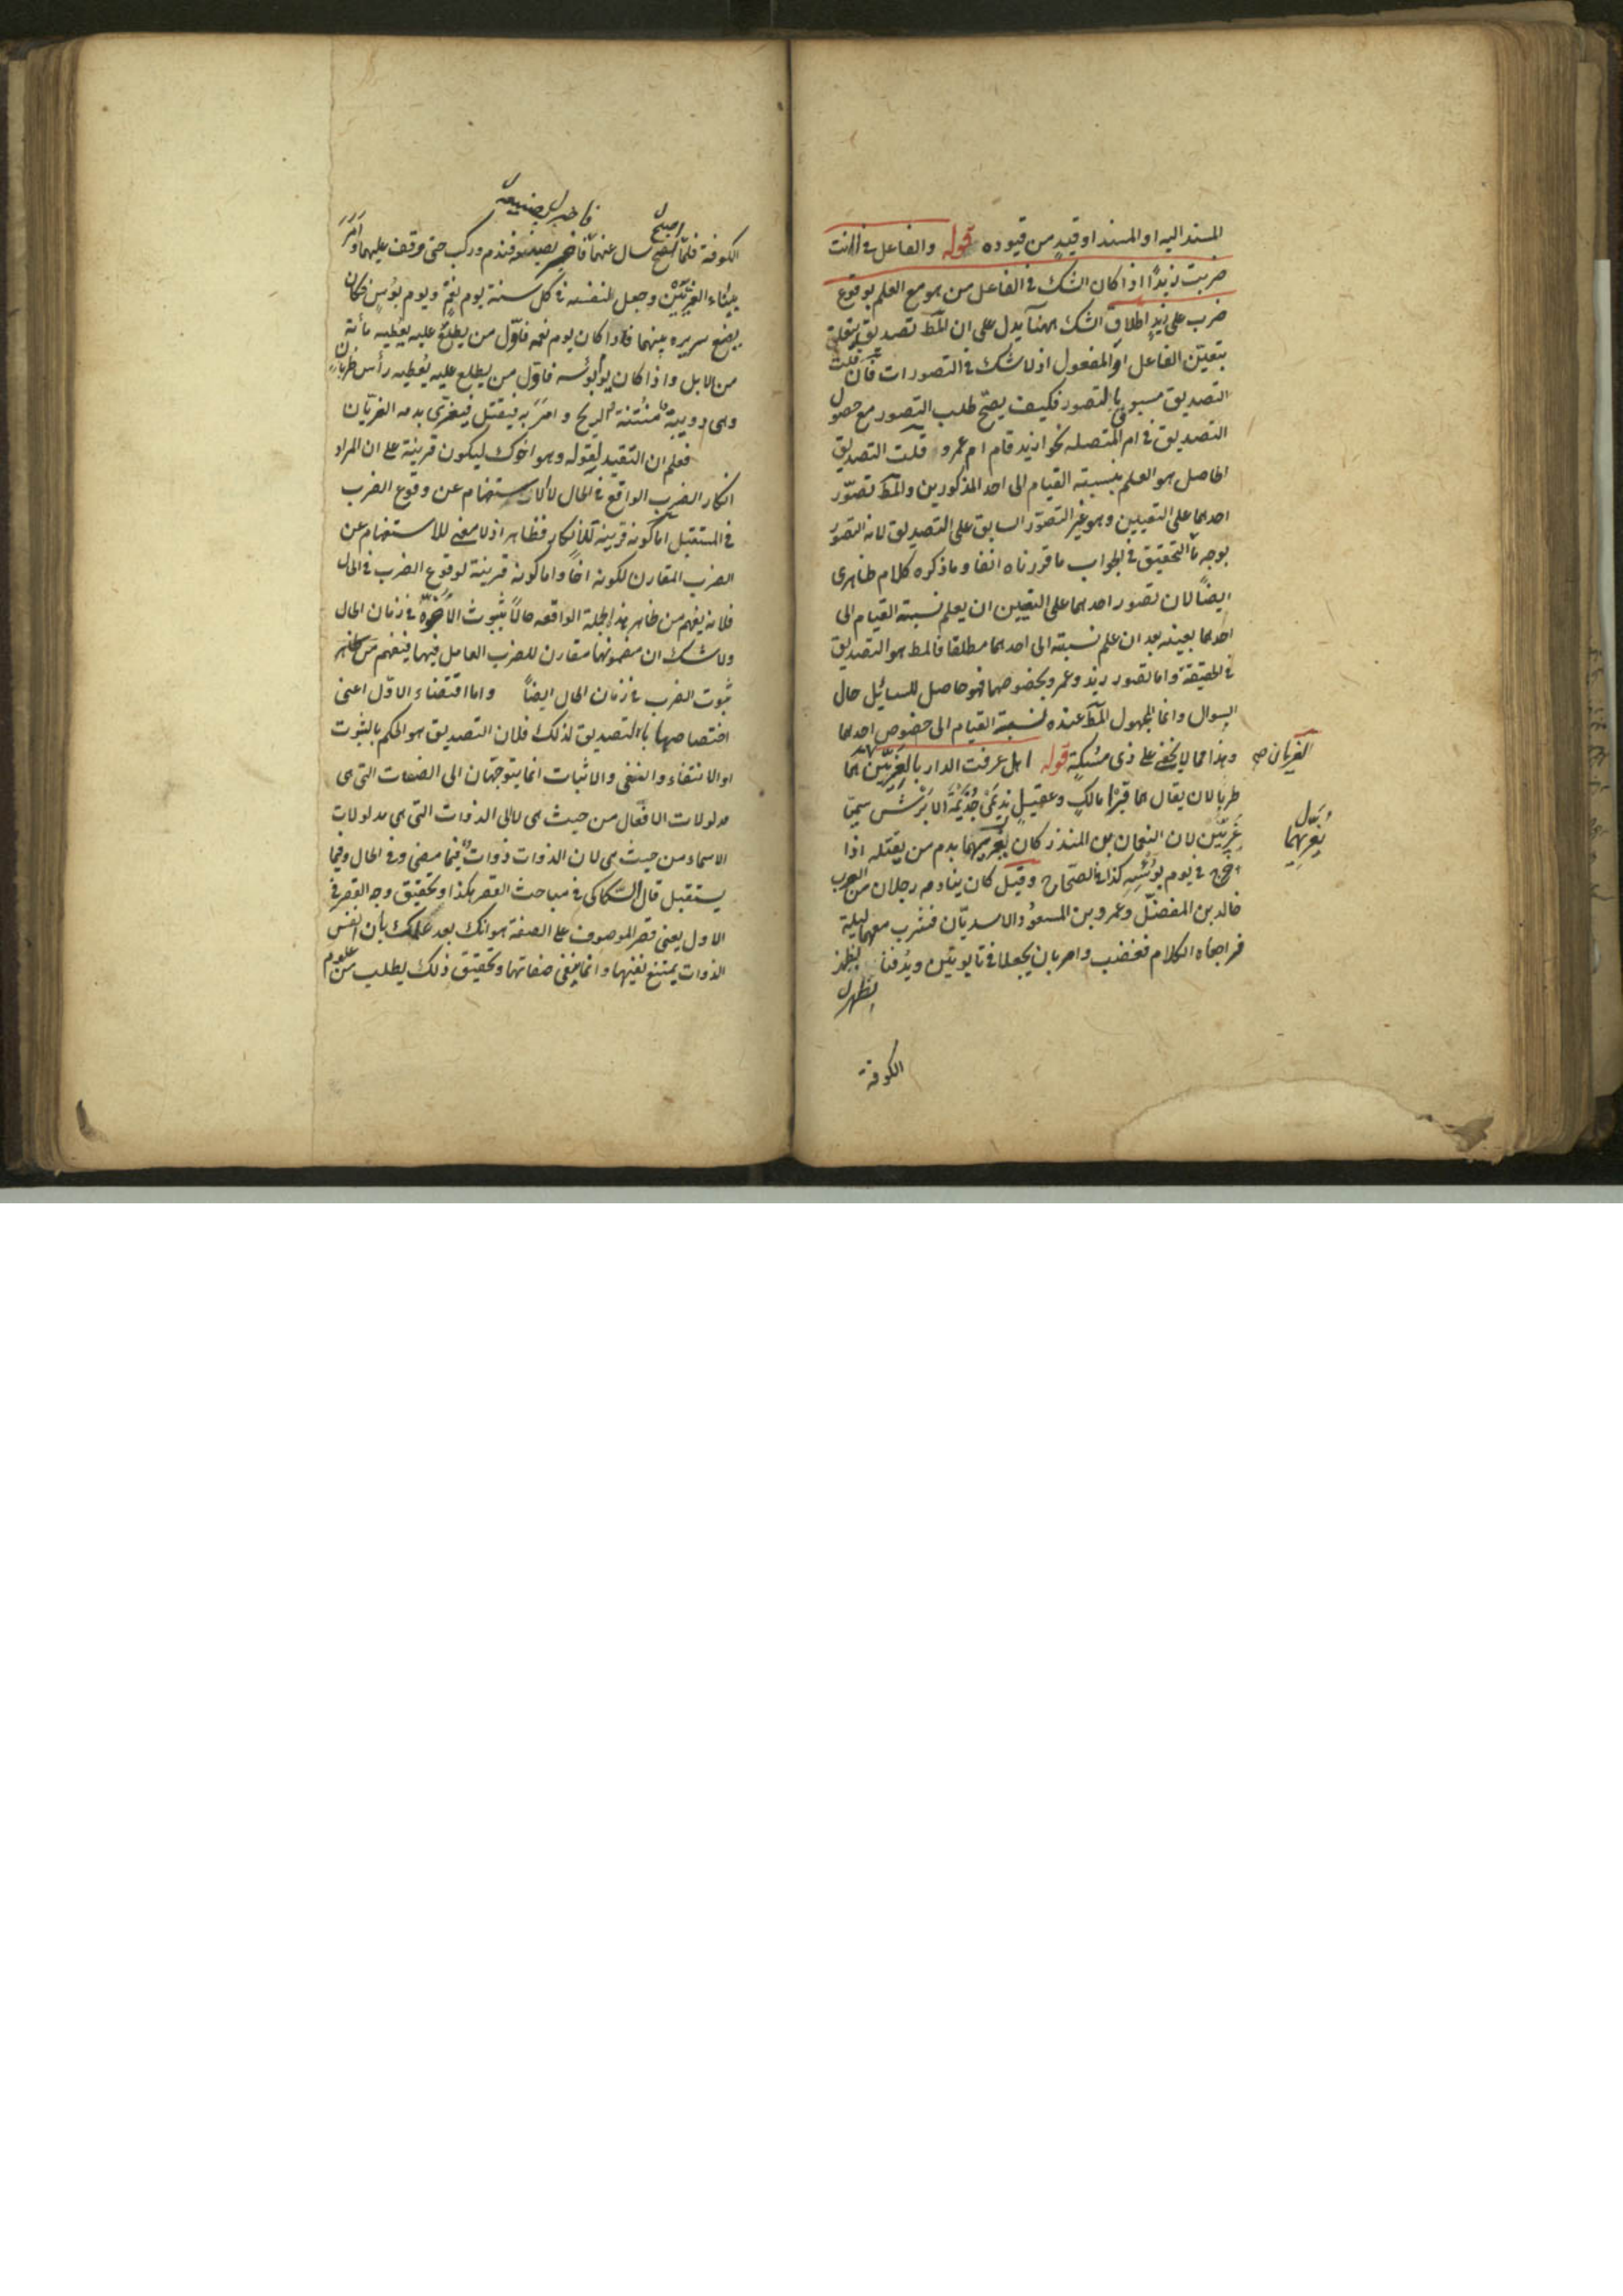 المسند اليه او المسند او قيد من قيوده قوله والفاعل فى اانت
ضربت زيدًا اذا كان الشك فى الفاعل من هو مع العلم بوقوع
ضرب على زيد اطلاق الشك ههنا يدل على ان المط تصديق يتعلق
بتعيّن الفاعل او المفعول اذ لا شك فى التصورات فان قلت
التصديق مسبوق بالتصور فكيف يصحّ طلب التصور مع حصول
التصديق فى ام المتصله نحو ازيد قام ام عمرو قلت التصديق
الحاصل هو العلم بنسبته القيام الى احد المذكورين والمط تصوّر
احدهما على التعيين وهو غير التصوّر السابق على التصديق لانه التصوّر
بوجه ما التحقيق فى الجواب ما قررناه انفا وما ذكره كلام ظاهرى
ايضًا لان تصور احدهما على التعيين ان يعلم نسبة القيام الى
احدهما بعينه بعد ان علم نسبته الى احدهما مطلقا فالمط هو التصديق
فى الحقيقة واما تصور زيد وعمرو بخصوصهما فهو حاصل للسائل حال
السوال وانما المجهول المط عنده نسبة القيام الى خصوص احدهما
وهذا مما لا يخفى على ذى مسكة قوله اهل عرفت الدار بالغريّين هما
الغريان صح
طربالان يقال هما قبرا مالك وعقيل نديمَىْ جُذيمَة الابرش سمّيا
غَرِيّين لان النعمان بن المنذر كان يغريهما بدم من يقتله اذا
يُغَرِيهِما
خرج فى يوم بؤسه كذا فى الصّحاح وقيل كان ينادمه رجلان من العرب
خالد بن المفضّل وعمرو بن المسعود الاسديّان فشرب معهما ليلة
فراجعاه الكلام فغضب وامر بان يجعلا فى تابوتين ويدفنا بظهر
بظهر
الكوفة
فاخبر بصنيعه
اصبح
الكوفة فلمّا اصبح سال عنهما فاخبر بصنيعه فندم وركب حتى وقف عليهما وامَرَ
ببناء الغريّين وجعل لنفسه فى كل سنة يوم نعم ويوم بؤس فكان
يضع سريره بينهما فاذا كان يوم نعمه فاوّل من يطلع عليه يعطيه مأئة
من الابل واذا كان يوم بؤسه فاوّل من يطلع عليه يُعطيه رأس ظربان
وهى دويبة منتنة الريح وامَرَ به فيقتل فيغرّى بدمه الغريّان
فعلم ان التقييد لقوله وهو اخوك ليكون قرينة على ان المراد
انكار الضرب الواقع فى الحال لا الاستفهام عن وقوع الضرب
فى المستقبل اما كونه قرينة للانكار فظاهر اذ لا معنى للاستفهام عن
الضرب المقارن لكونه اخًا واما كونه قرينة لوقوع الضرب فى الحال
فلانه يفهم من ظاهر هذه الجملة الواقعه حالًا بثبوت الاخوّة فى زمان الحال
ولا شك ان مضمونها مقارن للضرب العامل فيها فيفهم من ظاهره
ثبوت الضرب فى زمان الحال ايضًا واما اقتضاء الاوّل اعنى
اختصاصها بالتصديق لذلك فلان التصديق هو الحكم بالثبوت
او الانتفاء والنفى والاثبات انما يتوجّهان الى الصفات التى هى
مدلولات الافعال من حيث هى لا الى الذوات التى هى مدلولات
الاسماء من حيث هى لان الذوات ذوات فيما مضى وفى الحال وفيما
يستقبل قال السّكاكى فى مباحث القصر هكذا وتحقيق وجه القصر فى
الاول يعنى قصر الموصوف على الصفة هو انك بعد علمك بأن انفس
الذوات يمتنع نفيها وانما ينفى صفاتها وتحقيق ذلك يطلب من علوم